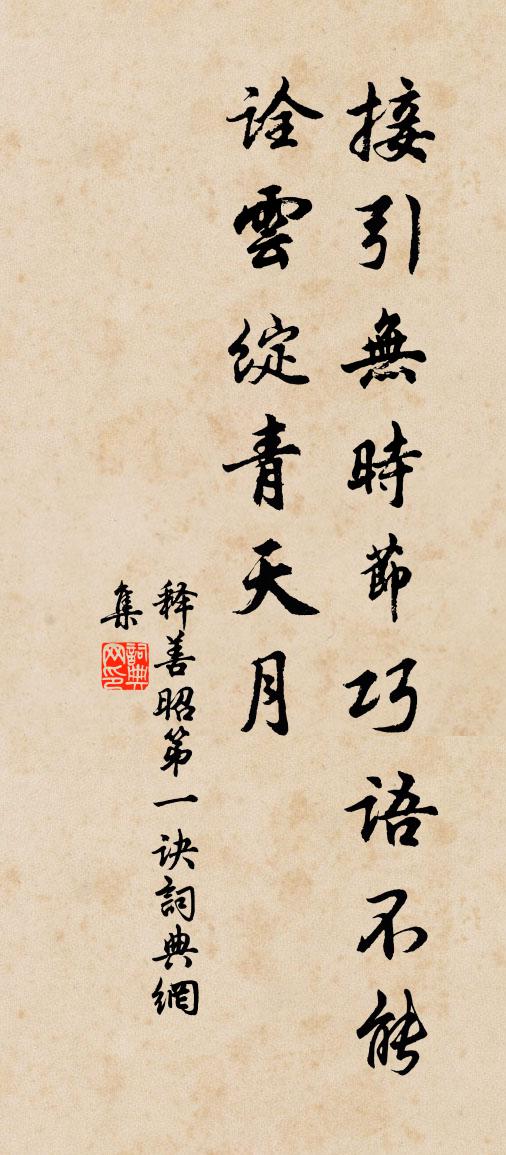 接引無時節巧語不能
詮雲綻青天月
释善昭第一诀詞典網
集
詞典网印